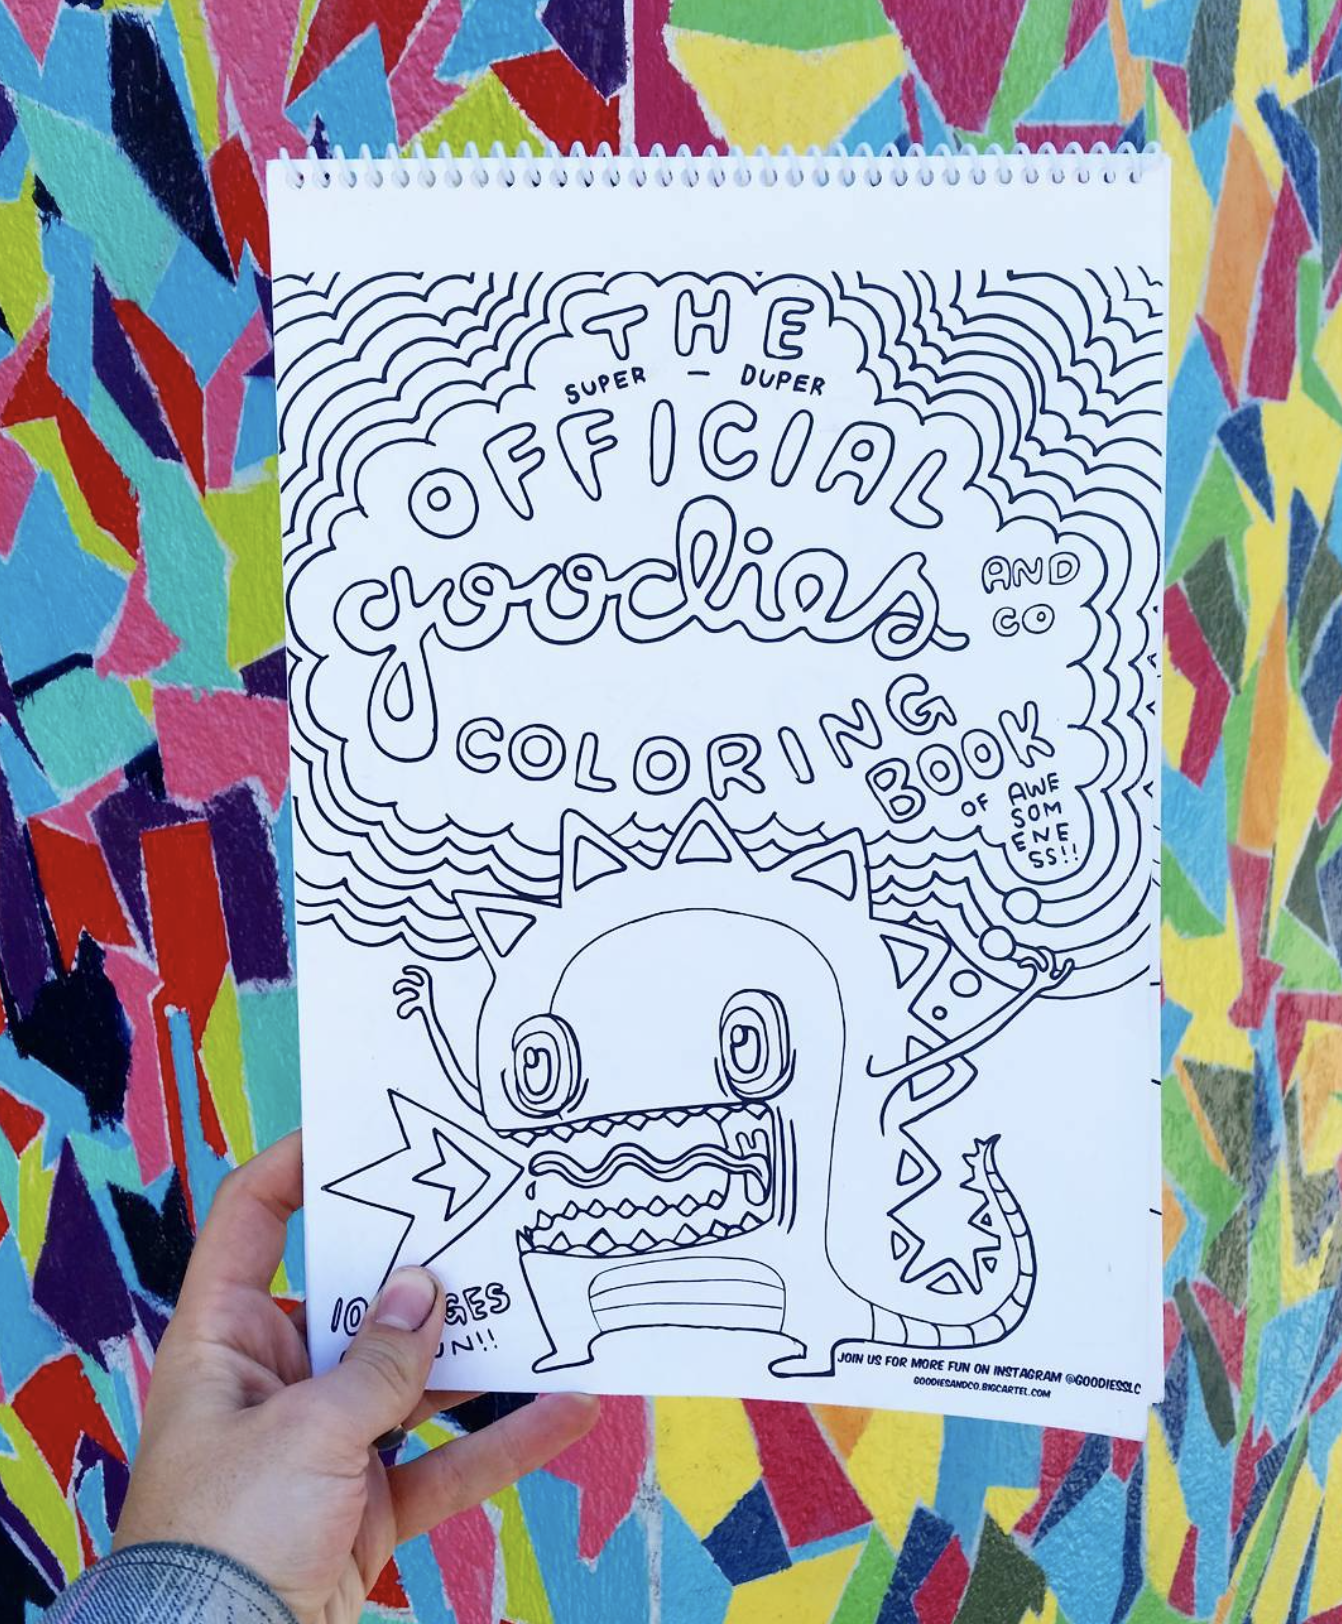 THE
SUPER - DUPER
OFFICIAL
goodies
AND
CO
COLORING
BOOK
OF AWE
SOM
ENE
SS!!
JOIN US FOR MORE FUN ON INSTAGRAM @GOODIESSLC
GOODIESANDCO.BIGCARTEL.COM